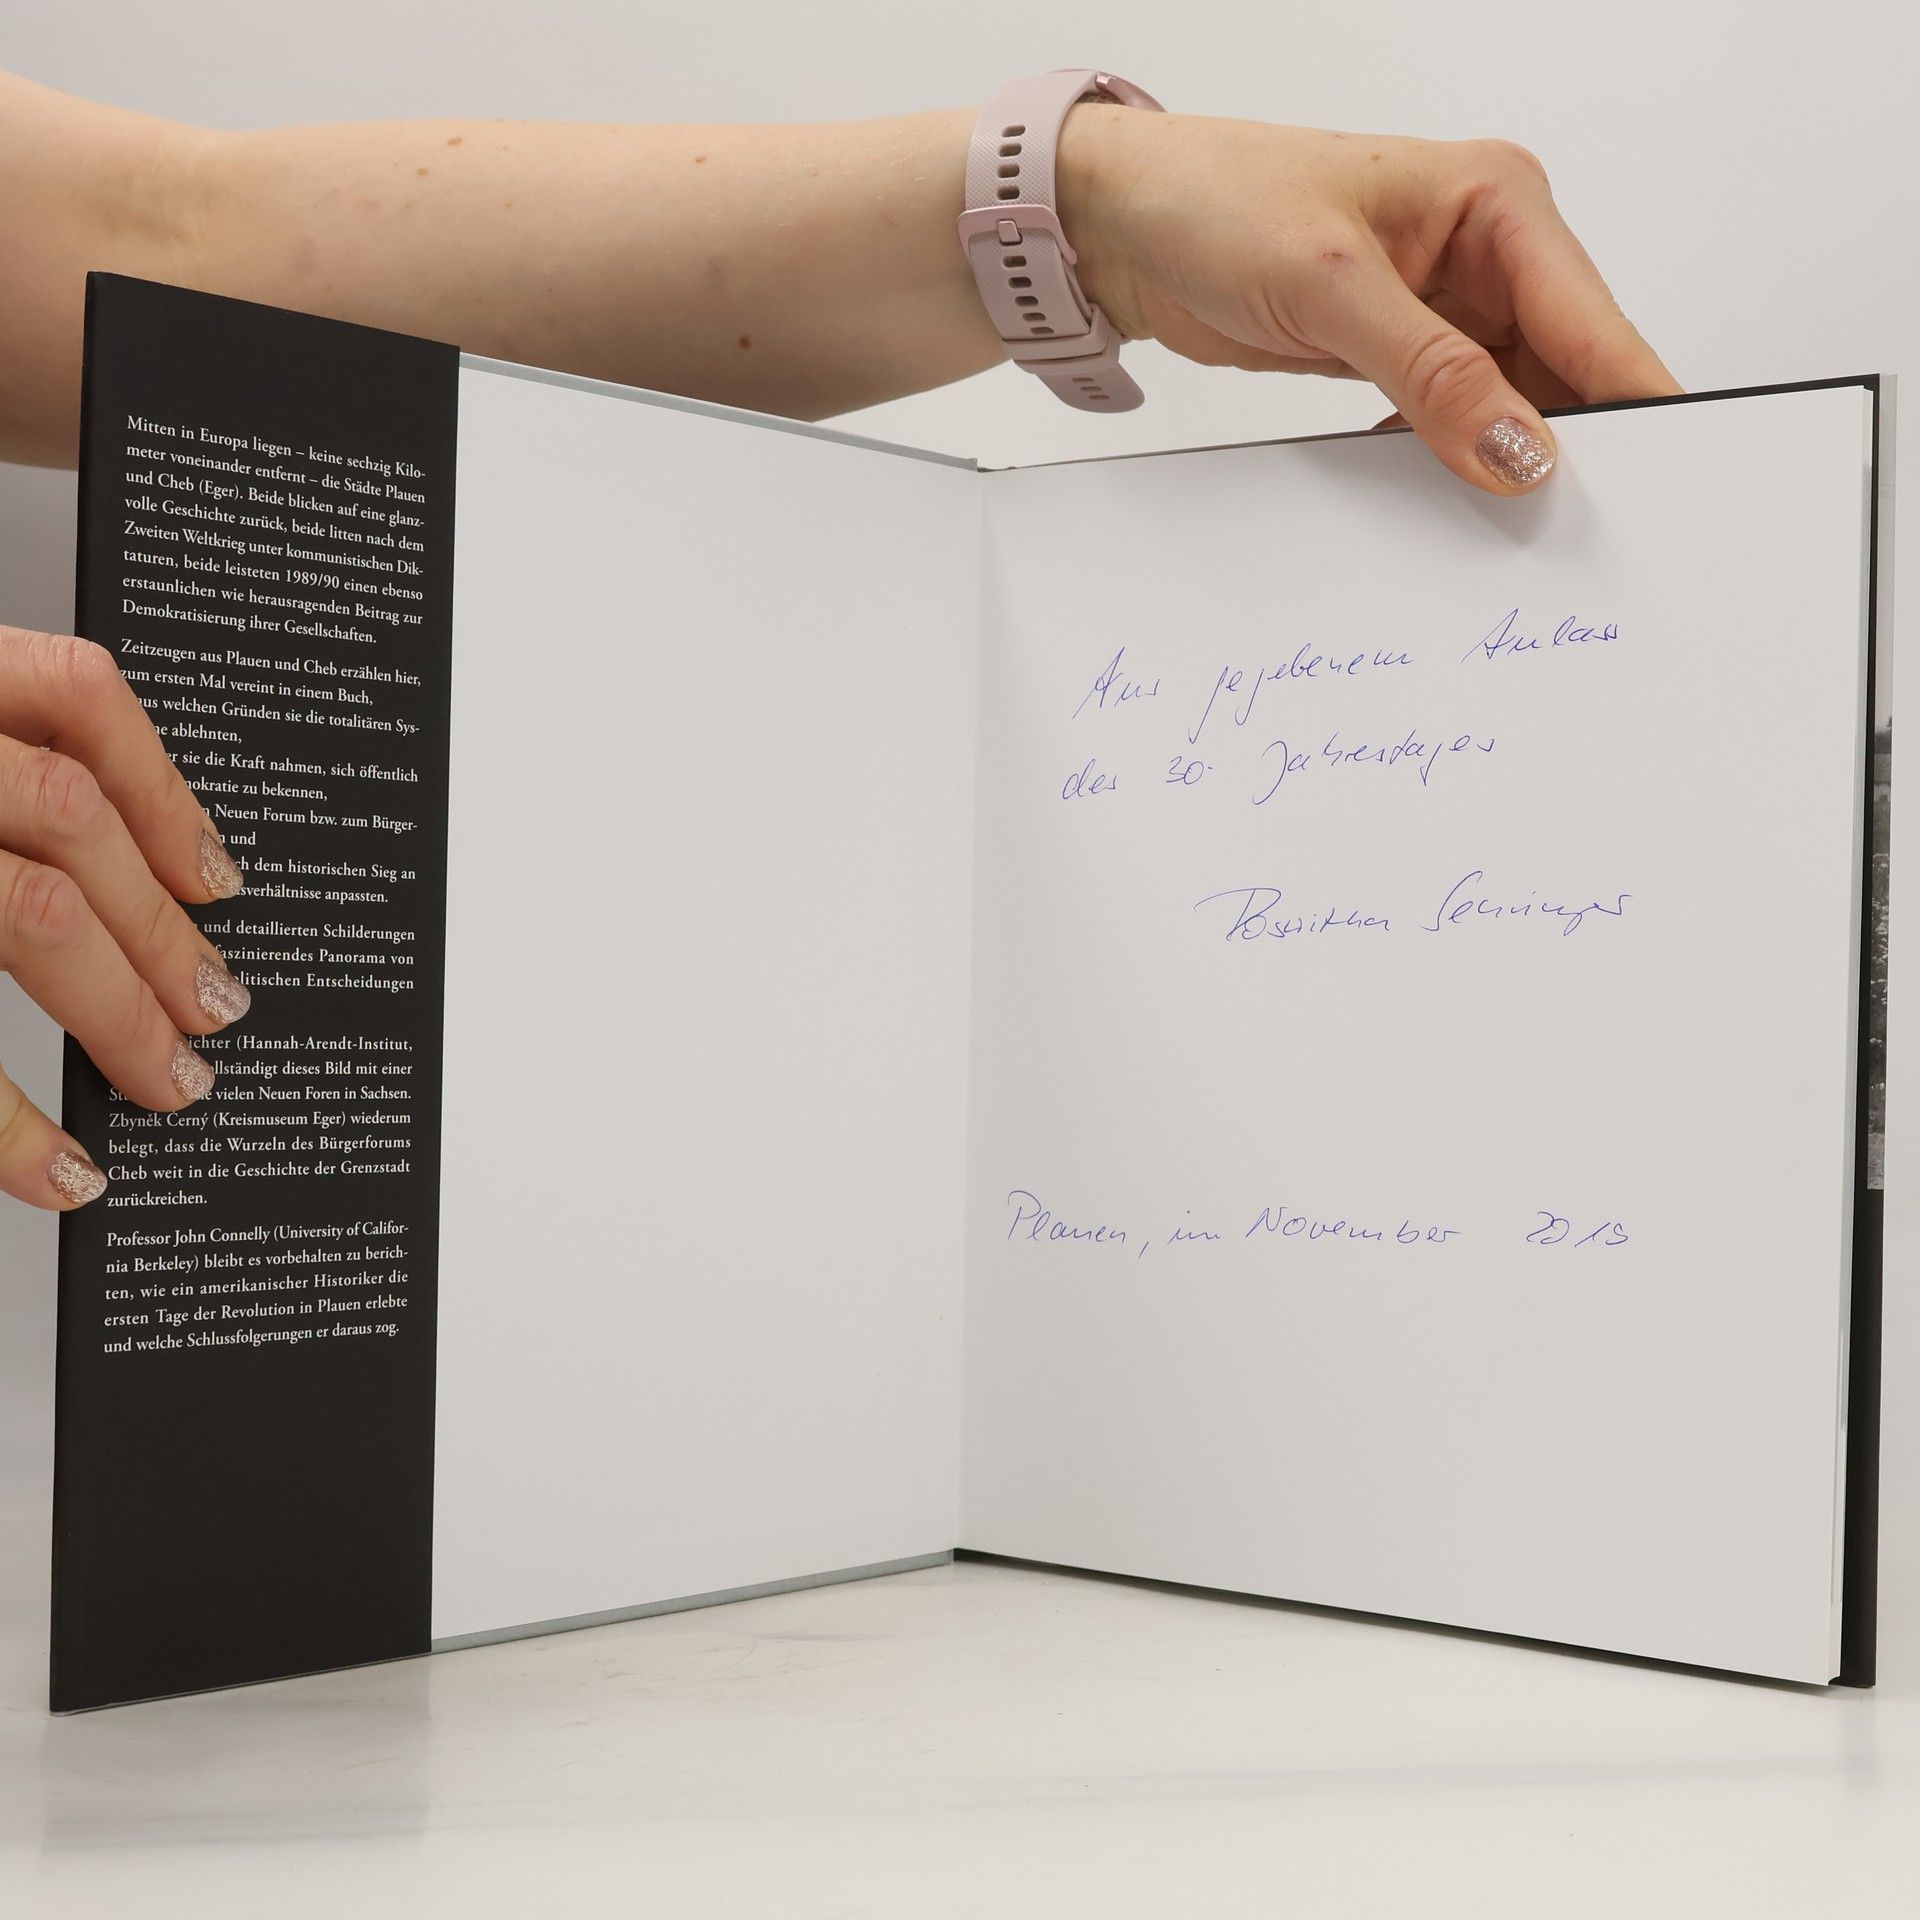 Mitten in Europa liegen – keine sechzig Kilo-
meter voneinander entfernt – die Städte Plauen
und Cheb (Eger). Beide blicken auf eine glanz-
volle Geschichte zurück, beide litten nach dem
Zweiten Weltkrieg unter kommunistischen Dik-
taturen, beide leisteten 1989/90 einen ebenso
erstaunlichen wie herausragenden Beitrag zur
Demokratisierung ihrer Gesellschaften.
Zeitzeugen aus Plauen und Cheb erzählen hier,
zum ersten Mal vereint in einem Buch,
aus welchen Gründen sie die totalitären Sys-
ablehnten,
sie die Kraft nahmen, sich öffentlich
zu bekennen,
Neuen Forum bzw. zum Bürger-
und
dem historischen Sieg an
anpassten.
und detaillierten Schilderungen
faszinierendes Panorama von
Entscheidungen
(Hannah-Arendt-Institut,
dieses Bild mit einer
vielen Neuen Foren in Sachsen.
Zbyněk Černý (Kreismuseum Eger) wiederum
belegt, dass die Wurzeln des Bürgerforums
Cheb weit in die Geschichte der Grenzstadt
zurückreichen.
Professor John Connelly (University of Califor-
nia Berkeley) bleibt es vorbehalten zu berich-
ten, wie ein amerikanischer Historiker die
ersten Tage der Revolution in Plauen erlebte
und welche Schlussfolgerungen er daraus zog.
Aus gegebenem Anlass
des 30. Jahrestages
Plauen, im November 2019